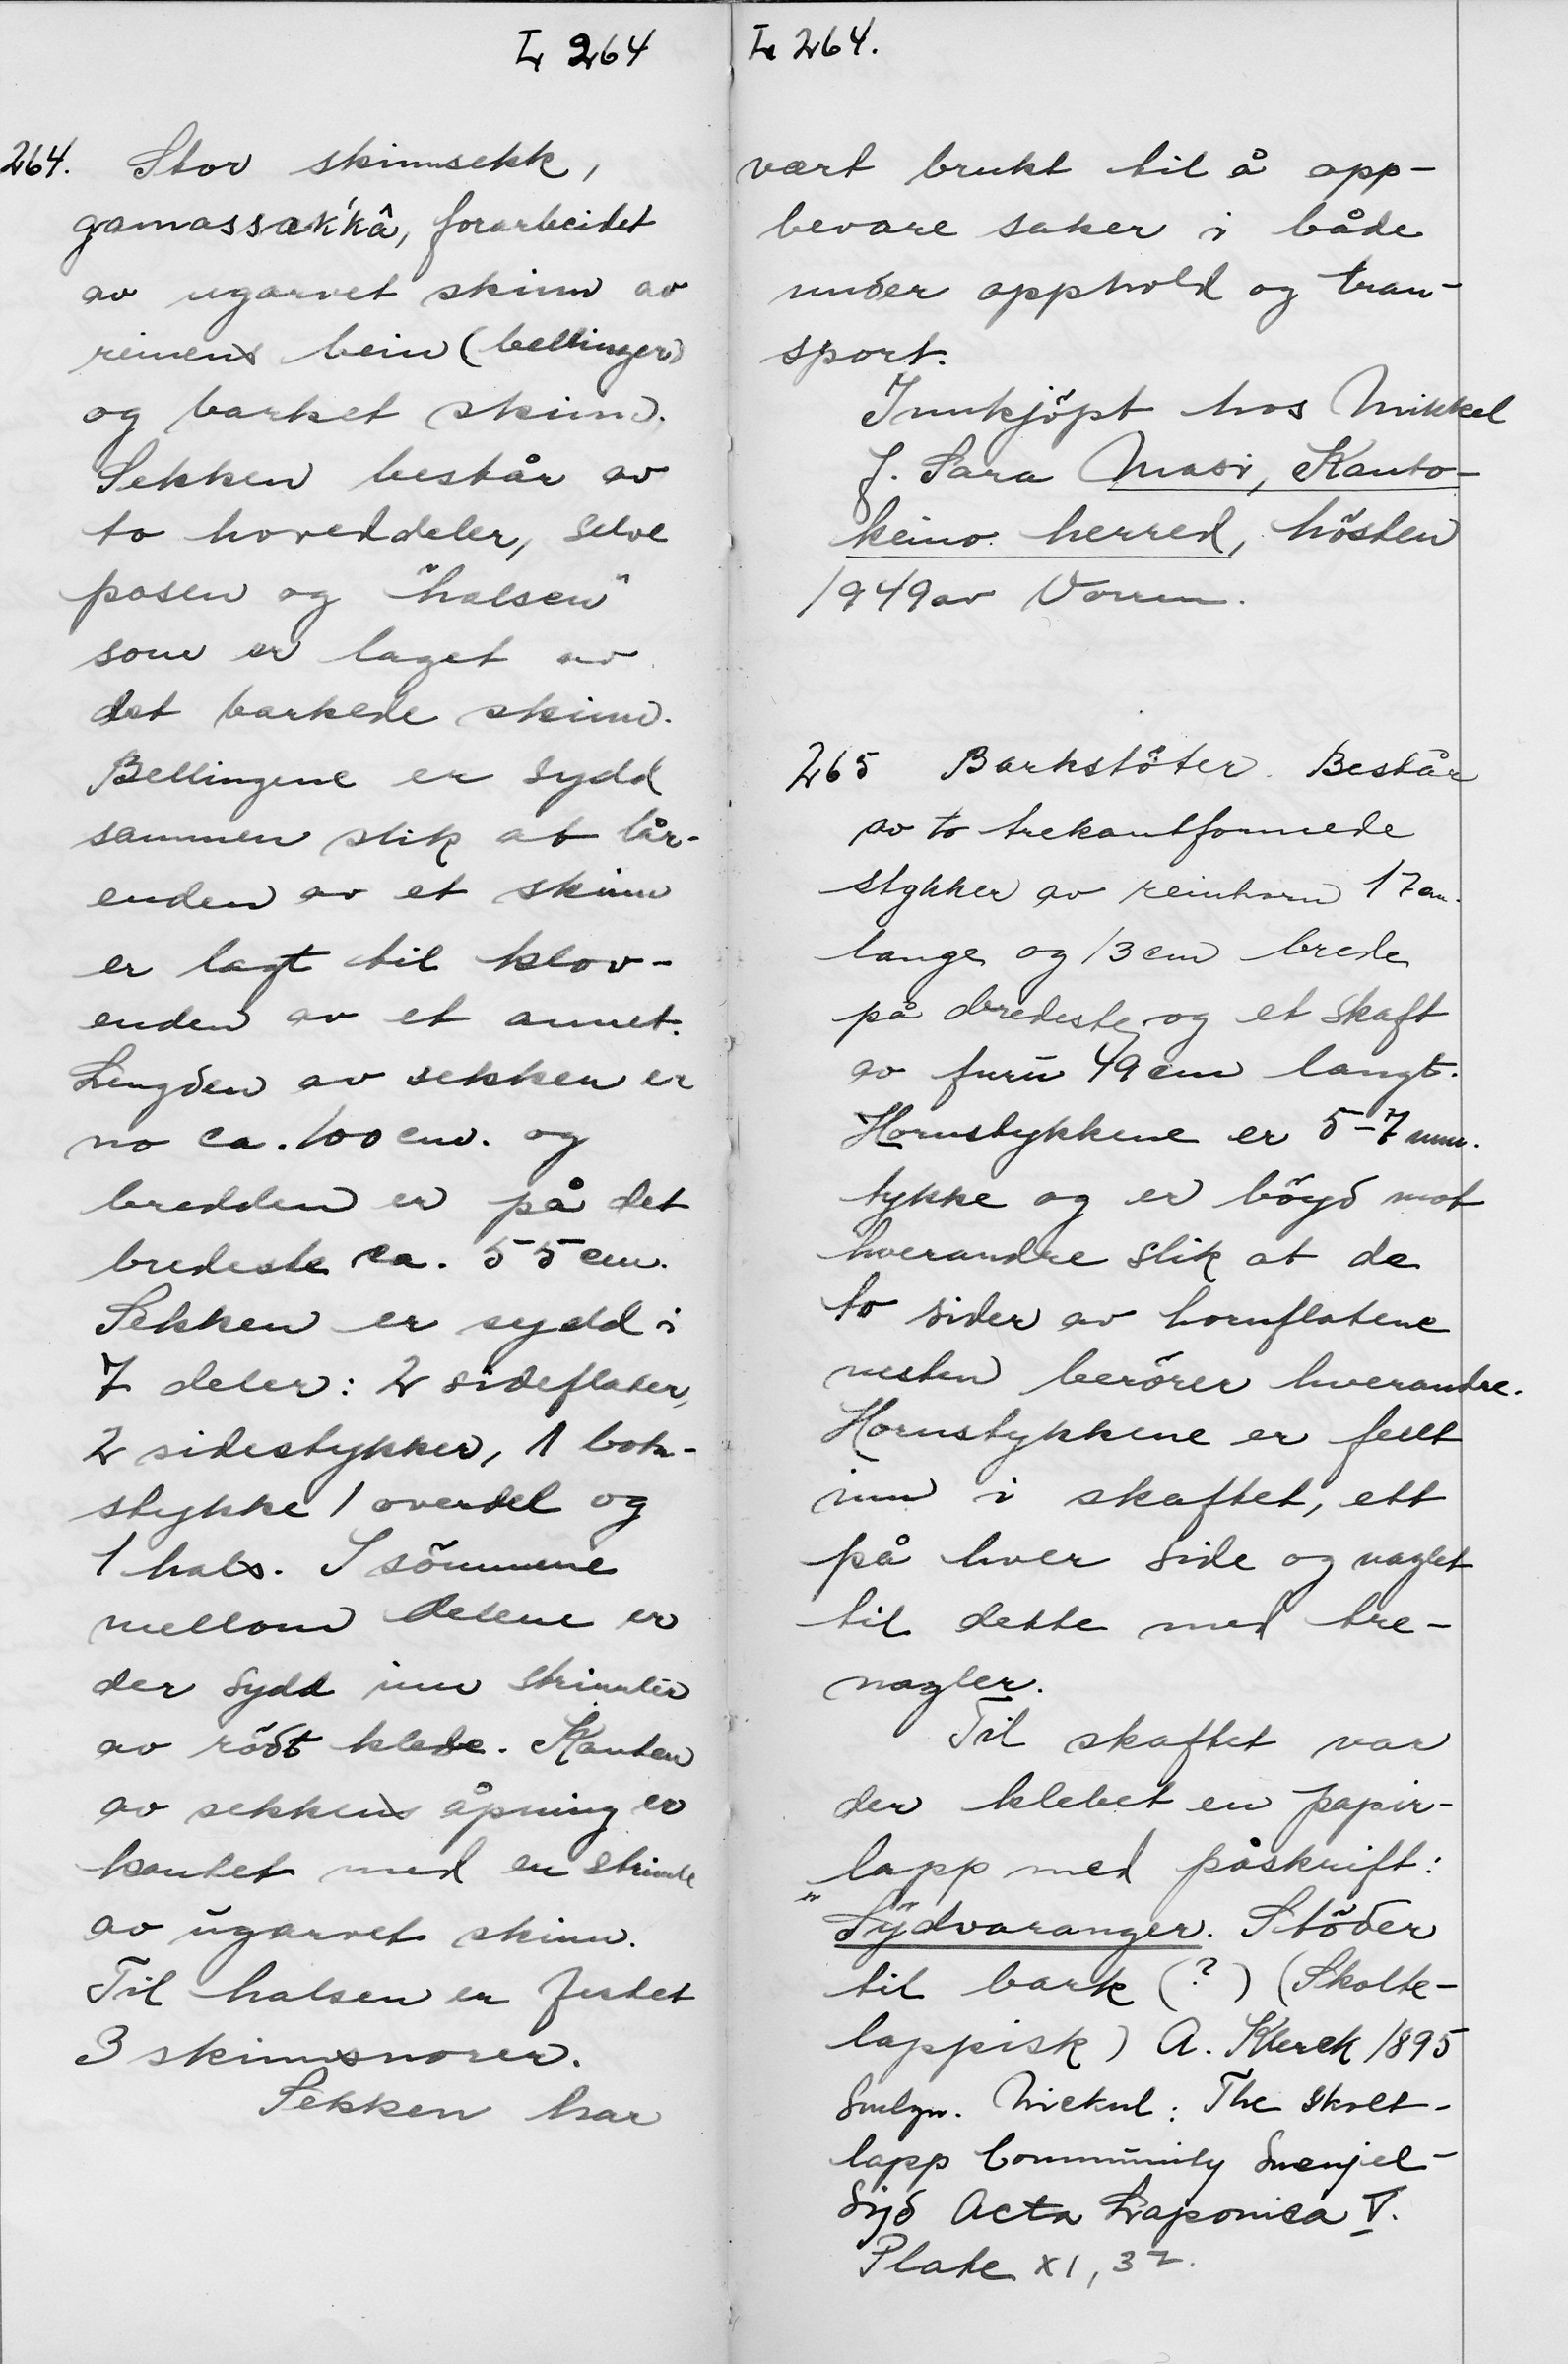 L 264
264. Stor skinnsekk,
gamassæk'kâ, forarbeidet
av ugarvet skinn av
reinens bein (bellinger)
og barket skinn.
Sekken består av
to hoveddeler, selve
posen og "halsen"
som er laget av
det barkede skinn.
Bellingene er sydd
sammen slik at lår-
enden av et skinn
er lagt til klov-
enden av et annet.
Lengden av sekken er
no ca. 100 cm. og
bredden er på det
bredeste ca. 55 cm.
Sekken er sydd i
7 deler: 2 sideflater,
2 sidestykker, 1 botn-
stykke 1 overdel og
1 hals. I sömmene
mellom delene er
der sydd inn strimler
av rödt klede. Kanten
av sekkens åpning er
kantet med en strimle
av ugarvet skinn.
Til halsen er festet
3 skinnsnorer.
Sekken har
L 264.
vært brukt til å opp-
bevare saker i både
under opphold og tran-
sport.
Innkjöpt hos Mikkel
J. Sara Masi, Kauto-
keino herred, hösten
1949 av Vorren.
265 Barkstöter. Består
av to trekantformede
stykker av reinhorn 17 cm.
lange og 13 cm brede
på bredeste og et skaft
av furu 49 cm langt.
Hornstykkene er 5-7 mm.
tykke og er böyd mot
hverandre slik at de
to sider av hornflatene
nesten berörer hverandre.
Hornstykkene er felt
inn i skaftet, ett
på hver side og naglet
til dette med tre-
nagler.
Til skaftet var
der klebet en papir-
lapp med påskrift:
"Sydvaranger. Stöder
til bark (?) (Skolte-
lappisk) A. Klerck 1895
Smlgn. Nickul: The Skolt-
lapp Community Suenjel-
sijd Acta Lapponica V.
Plate XI, 37.